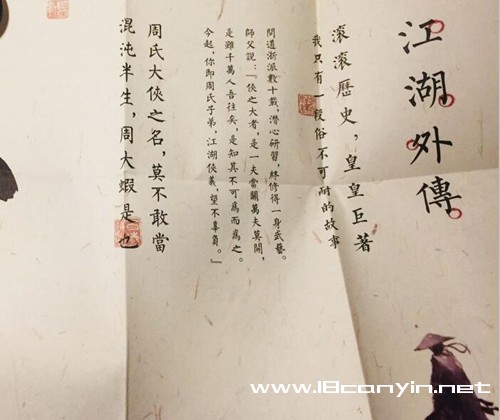 江湖外傳
滾滾歷史，皇皇巨著
我只有一段俗不可耐的故事
問道浙派數十載，潛心研習，終修得一身武藝。
師父說：「俠之大者，是一夫當關萬夫莫開，
是雖千萬人吾往矣，是知其不可爲而爲之。
今起，你即周氏子弟，江湖俠義，望不辜負。」
周氏大俠之名，莫不敢當
混沌半生，周大蝦是也
www.18canyin.net